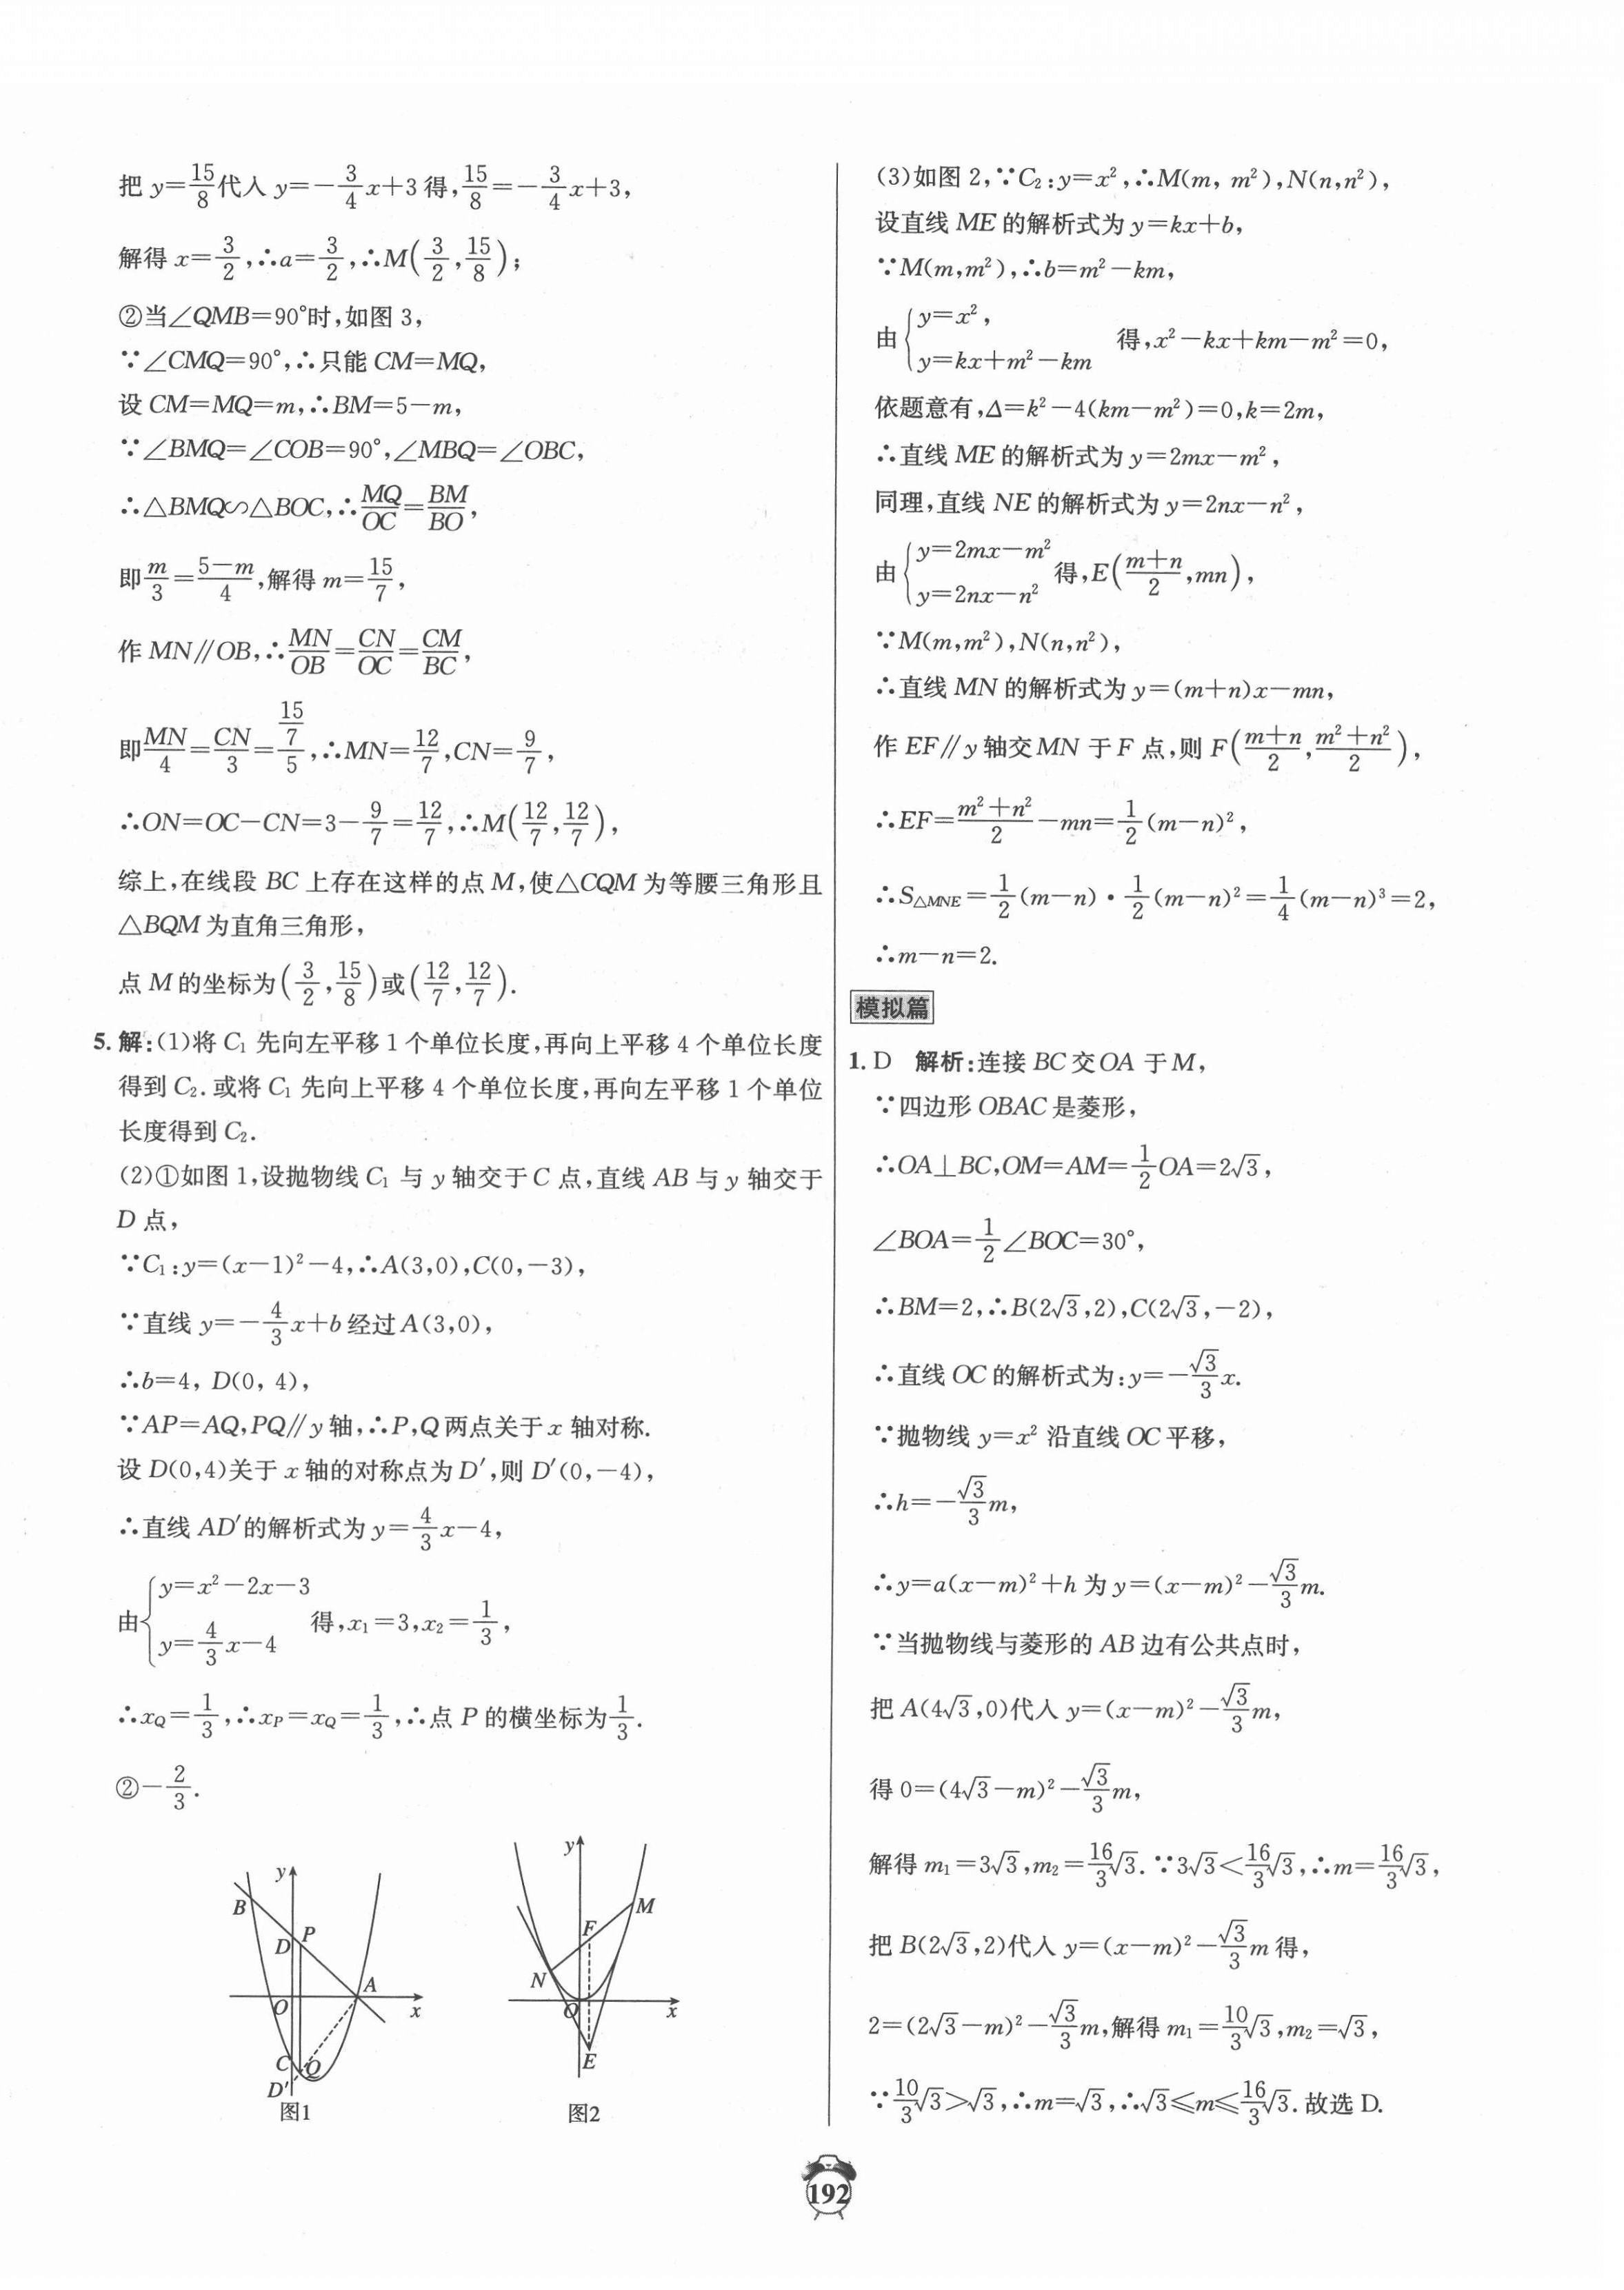 把 y=15/8 代入 y=-3/4x+3 得,15/8=-3/4x+3,
解得 x=3/2,∴a=3/2,∴M(3/2,15/8);
②当∠QMB=90°时,如图 3,
∵∠CMQ=90°,∴只能 CM=MQ,
设 CM=MQ=m,∴BM=5-m,
∵∠BMQ=∠COB=90°,∠MBQ=∠OBC,
∴△BMQ∽△BOC,∴MQ/OC=BM/BO,
即 m/3=(5-m)/4,解得 m=15/7,
作 MN∥OB,∴MN/OB=CN/OC=CM/BC,
即 MN/4=CN/3=(15/7)/5,∴MN=12/7,CN=9/7,
∴ON=OC-CN=3-9/7=12/7,∴M(12/7,12/7),
综上,在线段 BC 上存在这样的点 M,使△CQM 为等腰三角形且
△BQM 为直角三角形,
点 M 的坐标为(3/2,15/8)或(12/7,12/7).
5. 解:(1)将 C₁ 先向左平移 1 个单位长度,再向上平移 4 个单位长度
得到 C₂. 或将 C₁ 先向上平移 4 个单位长度,再向左平移 1 个单位
长度得到 C₂.
(2)①如图 1,设抛物线 C₁ 与 y 轴交于 C 点,直线 AB 与 y 轴交于
D 点,
∵C₁:y=(x-1)²-4,∴A(3,0),C(0,-3),
∵直线 y=-4/3x+b 经过 A(3,0),
∴b=4, D(0, 4),
∵AP=AQ,PQ∥y 轴,∴P,Q 两点关于 x 轴对称.
设 D(0,4)关于 x 轴的对称点为 D′,则 D′(0,-4),
∴直线 AD′的解析式为 y=4/3x-4,
由{y=x²-2x-3
y=4/3x-4 得,x₁=3,x₂=1/3,
∴x_Q=1/3,∴x_P=x_Q=1/3,∴点 P 的横坐标为1/3.
②-2/3.
y
B
D
P
A
O
x
C
Q
D′
图1
y
M
F
N
O
x
E
图2
(3)如图 2,∵C₂:y=x²,∴M(m, m²),N(n,n²),
设直线 ME 的解析式为 y=kx+b,
∵M(m,m²),∴b=m²-km,
由{y=x²,
y=kx+m²-km 得,x²-kx+km-m²=0,
依题意有,Δ=k²-4(km-m²)=0,k=2m,
∴直线 ME 的解析式为 y=2mx-m²,
同理,直线 NE 的解析式为 y=2nx-n²,
由{y=2mx-m²
y=2nx-n² 得,E((m+n)/2,mn),
∵M(m,m²),N(n,n²),
∴直线 MN 的解析式为 y=(m+n)x-mn,
作 EF∥y 轴交 MN 于 F 点,则 F((m+n)/2,(m²+n²)/2),
∴EF=(m²+n²)/2-mn=1/2(m-n)²,
∴S△MNE=1/2(m-n)·1/2(m-n)²=1/4(m-n)³=2,
∴m-n=2.
模拟篇
1. D 解析:连接 BC 交 OA 于 M,
∵四边形 OBAC 是菱形,
∴OA⊥BC,OM=AM=1/2OA=2√3,
∠BOA=1/2∠BOC=30°,
∴BM=2,∴B(2√3,2),C(2√3,-2),
∴直线 OC 的解析式为:y=-√3/3x.
∵抛物线 y=x² 沿直线 OC 平移,
∴h=-√3/3m,
∴y=a(x-m)²+h 为 y=(x-m)²-√3/3m.
∵当抛物线与菱形的 AB 边有公共点时,
把 A(4√3,0)代入 y=(x-m)²-√3/3m,
得 0=(4√3-m)²-√3/3m,
解得 m₁=3√3,m₂=16/3√3. ∵3√3<16/3√3,∴m=16/3√3,
把 B(2√3,2)代入 y=(x-m)²-√3/3m 得,
2=(2√3-m)²-√3/3m,解得 m₁=10/3√3,m₂=√3,
∵10/3√3>√3,∴m=√3,∴√3≤m≤16/3√3. 故选 D.
192